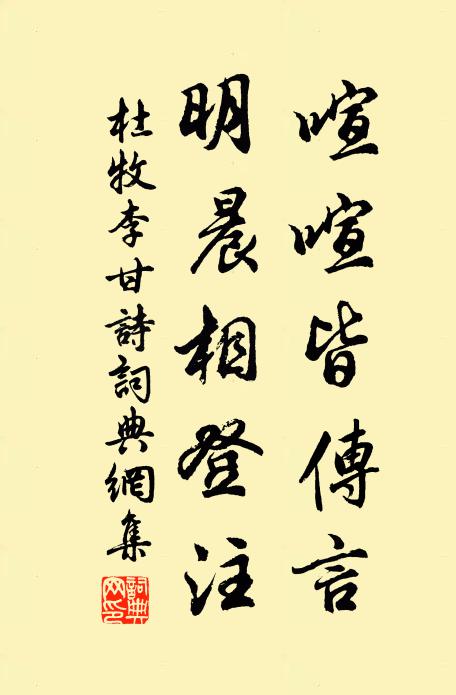 喧喧皆傳言
明晨相登注
杜牧李甘詩詞典網集
詞典网印